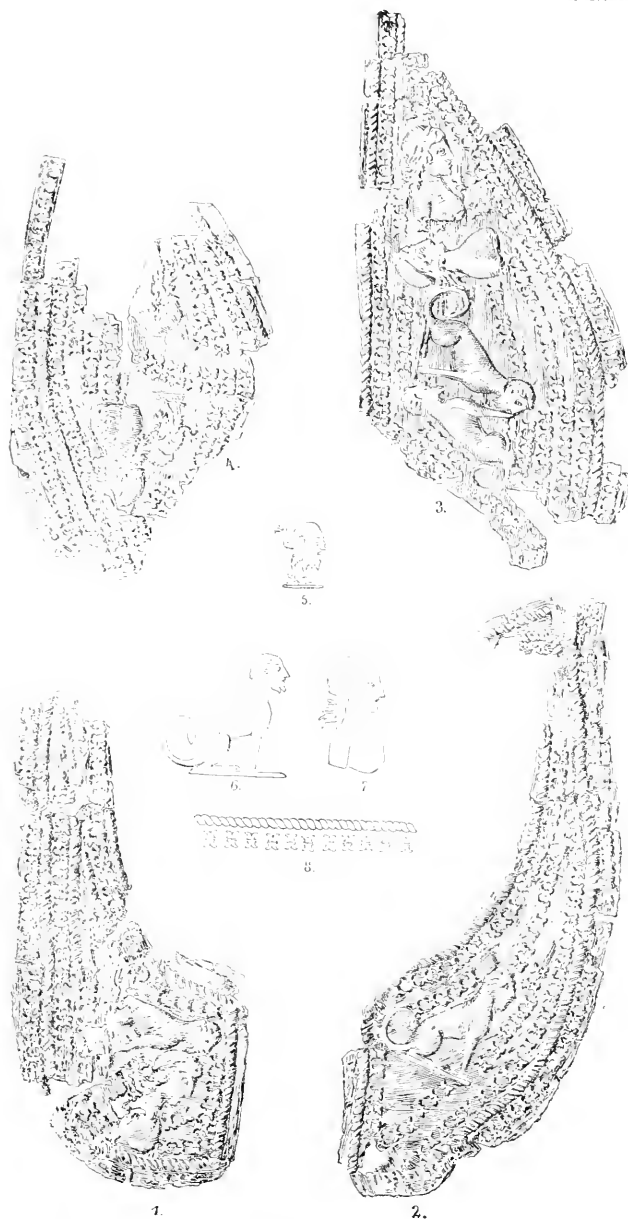 4.
3.
5.
6.
7
8.
1.
2.